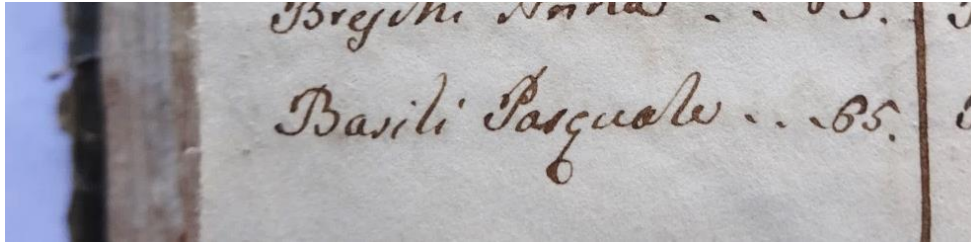 Breschi Anna . . 65.
Basili Pasquale . . . 65.